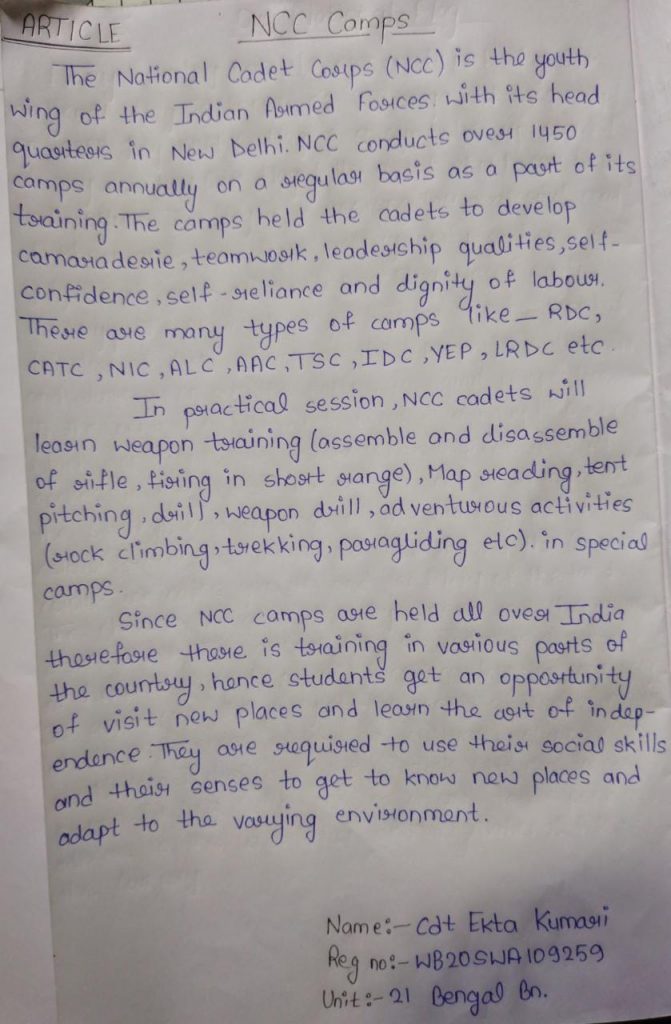 ARTICLE NCC Camps
The National Cadet Corps (NCC) is the youth
wing of the Indian Armed Forces. with its head
quarters in New Delhi. NCC conducts over 1450
camps annually on a regular basis as a part of its
training. The camps held the cadets to develop
camaraderie, teamwork, leadership qualities, self-
confidence, self-reliance and dignity of labour.
There are many types of camps like – RDC,
CATC, NIC, ALC, AAC, TSC, IDC, YEP, LRDC etc.
In practical session, NCC cadets will
learn weapon training (assemble and disassemble
of rifle, firing in short range), Map reading, tent
pitching, drill, weapon drill, adventurous activities
(rock climbing, trekking, paragliding etc). in special
camps.
Since NCC camps are held all over India
therefore there is training in various parts of
the country, hence students get an opportunity
of visit new places and learn the art of indep-
endence. They are required to use their social skills
and their senses to get to know new places and
adapt to the varying environment.
Name:- Cdt Ekta Kumari
Reg no:- WB20SWA109259
Unit:- 21 Bengal Bn.